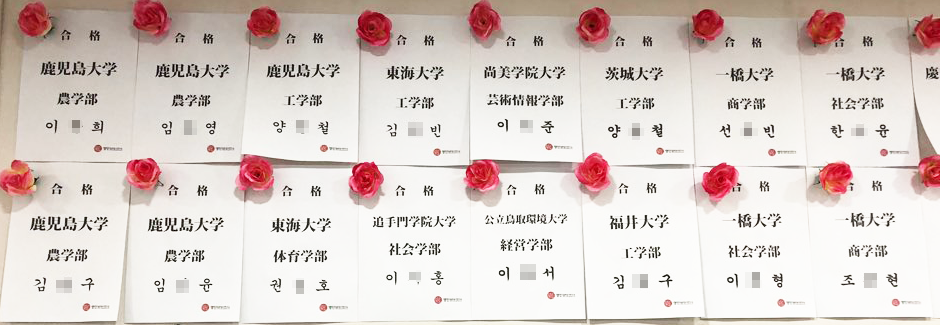 合 格
鹿児島大学
農学部
이 희
合 格
鹿児島大学
農学部
임 영
合 格
鹿児島大学
工学部
양 철
合 格
東海大学
工学部
김 빈
合 格
尚美学院大学
芸術情報学部
이 준
合 格
茨城大学
工学部
양 철
合 格
一橋大学
商学部
선 빈
合 格
一橋大学
社会学部
한 윤
慶
合 格
鹿児島大学
農学部
김 구
合 格
鹿児島大学
農学部
임 윤
合 格
東海大学
体育学部
권 호
合 格
追手門学院大学
社会学部
이 홍
合 格
公立鳥取環境大学
経営学部
이 서
合 格
福井大学
工学部
김 구
合 格
一橋大学
社会学部
이 형
合 格
一橋大学
商学部
조 현